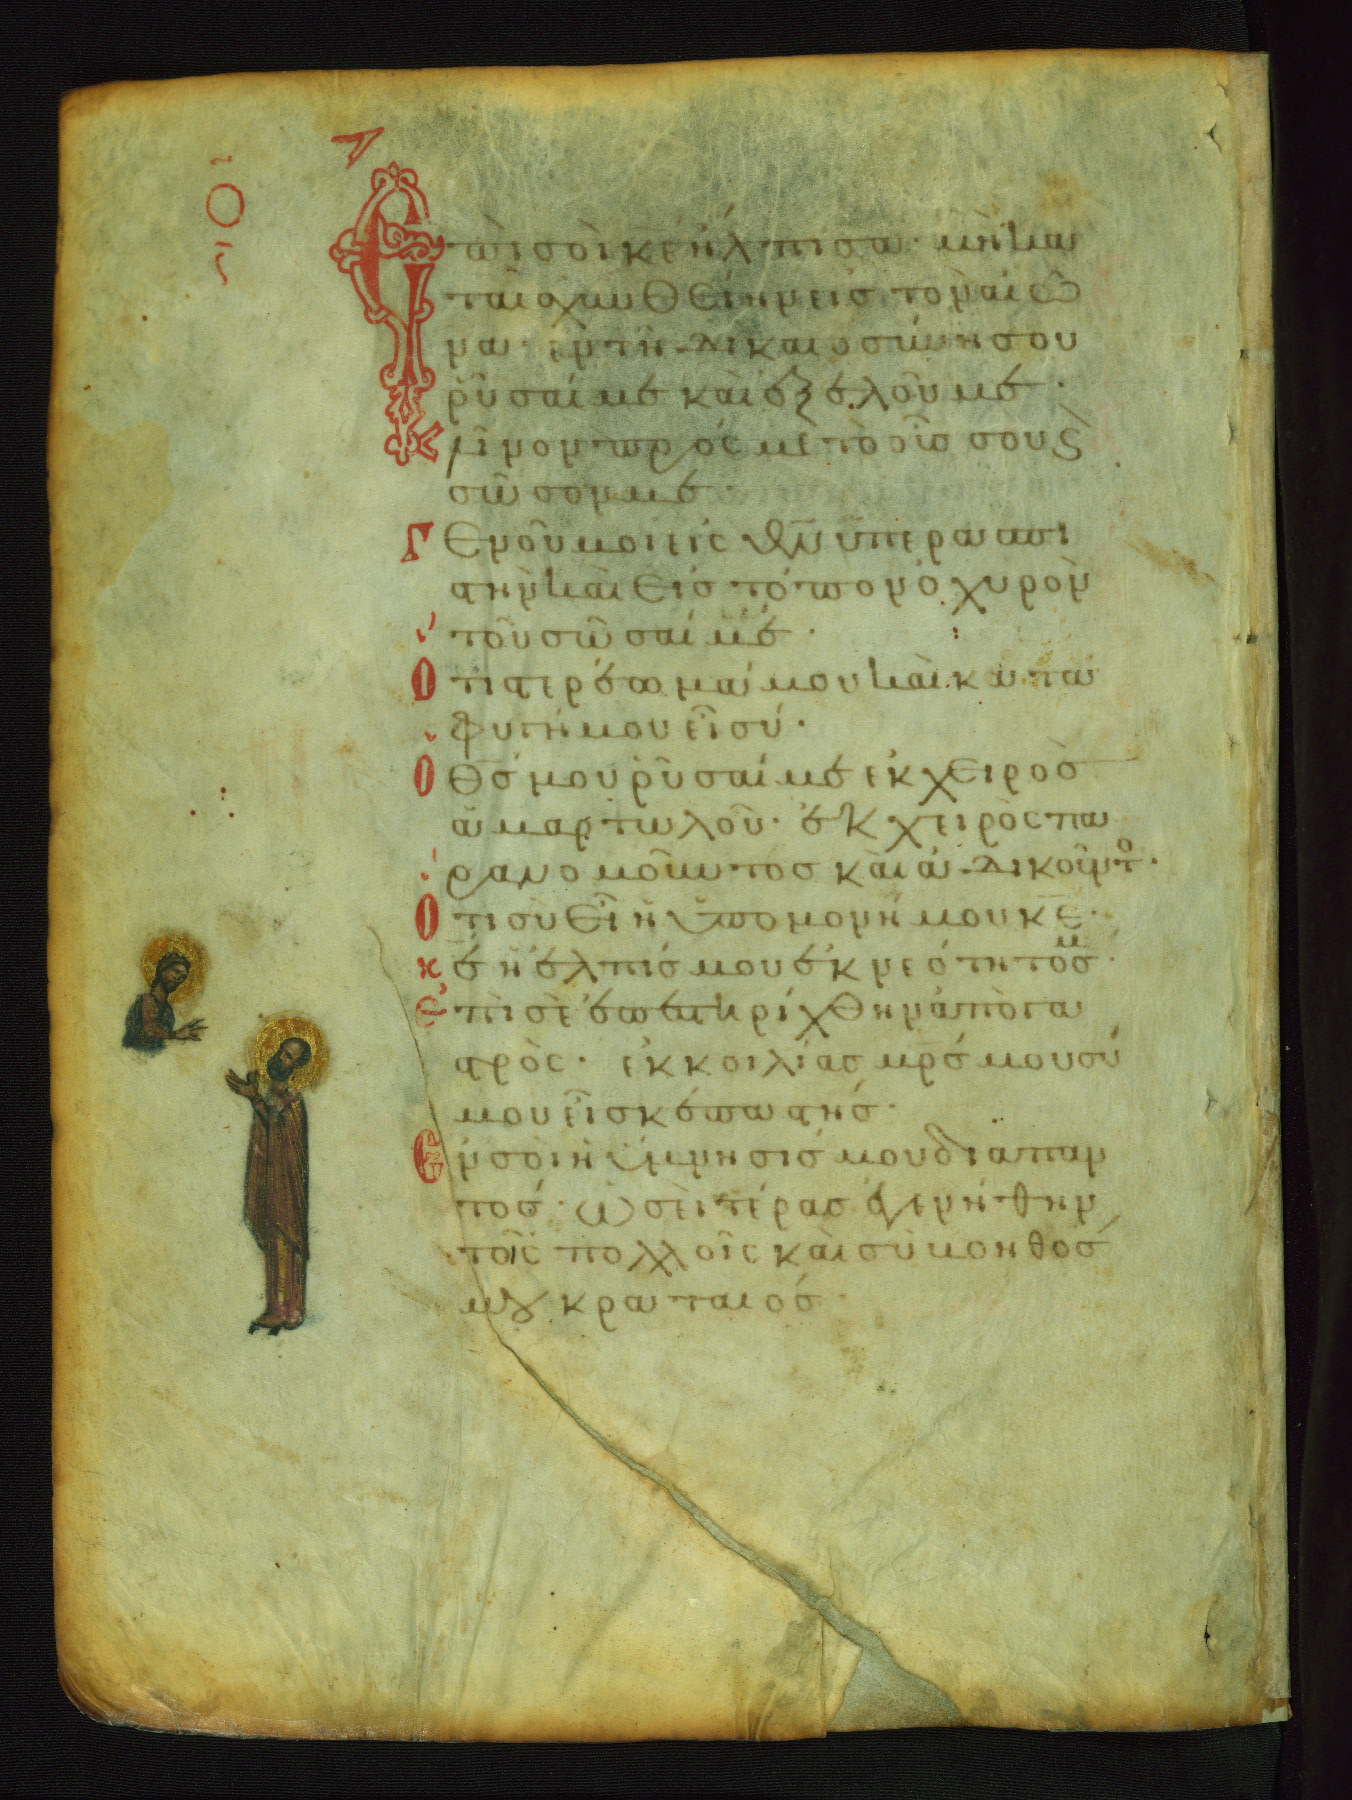 Ο
Ἐπὶ σοὶ κε ἤλπισα· μὴ κα
ταισχυνθείην εἰς τὸν αἰῶ
να· ἐν τῇ δικαιοσύνῃ σου
ῥῦσαί με καὶ ἐξελοῦ με·
Κλῖνον πρός με τὸ οὖς σου ϗ
σῶσον με·
Γενοῦ μοι εἰς θν ὑπερασπι
στὴν καὶ εἰς τόπον ὀχυρὸν
τοῦ σῶσαί με·
Ὅτι στερέωμά μου καὶ κατα
φυγή μου εἶ σύ·
Ὁ θς μου ῥῦσαί με ἐκ χειρὸς
ἁμαρτωλοῦ· ἐκ χειρὸς πα
ρανομοῦντος καὶ ἀδικοῦντο·
Ὅτι σὺ εἶ ἡ ὑπομονή μου κε·
κε ἡ ἐλπίς μου ἐκ νεότητός μ·
Ἐπὶ σὲ ἐπεστηρίχθην ἀπὸ γα
στρός· ἐκ κοιλίας μρς μου σύ
μου εἶ σκεπαστής·
Ἐν σοὶ ἡ ὕμνησίς μου διαπαν
τός· ὡσεὶ τέρας ἐγενήθην
τοῖς πολλοῖς καὶ σὺ βοηθός
μου κραταιός·